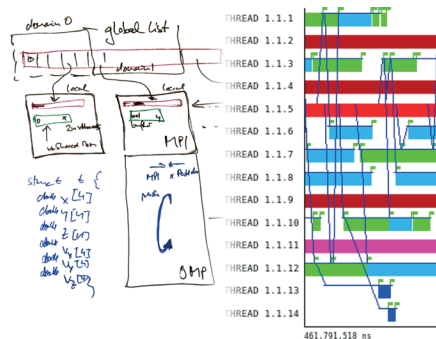 domain 0
global List
domain 1
local
local
buffer
MPI
struct t {
double x [4]
double y [4]
double z [4]
double Vx [4]
double Vy [4]
double Vz [4]
}
MPI x
OMPI
THREAD 1.1.1
THREAD 1.1.2
THREAD 1.1.3
THREAD 1.1.4
THREAD 1.1.5
THREAD 1.1.6
THREAD 1.1.7
THREAD 1.1.8
THREAD 1.1.9
THREAD 1.1.10
THREAD 1.1.11
THREAD 1.1.12
THREAD 1.1.13
THREAD 1.1.14
461.791.518 ns